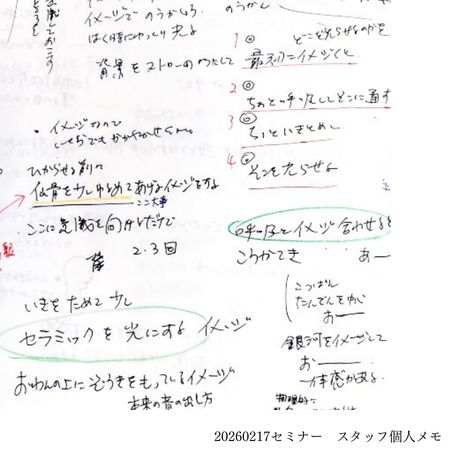 イメージで のうかしろ.
はく時にゆっくり 光よ
背景を ストローのつもりで
・イメージなので
いくらでも かがやかせてくへ.
ひからせる前の
仙骨を少しゆるめてあげるイメージをする
ここ大事
ここに意識を向けるだけで
2.3回
いきを ためて 少し
セラミックを 光にする イメージ
おわんの上に ぞうきをもっているイメージ
本来の音の出し方
どこを光らせるのかを
1 ◎ 最初にイメージして
2 ◎ ちゃんと呼吸してそこに通す
3 ◎ ちょっといきとめて
4 ◎ そこを光らせる
呼吸とイメージ 合わせると
こうかてき あー
こつばん
たんでんを中心
おー
銀河をイメージして
おー
一体感が出る.
物理的に
20260217セミナー　スタッフ個人メモ